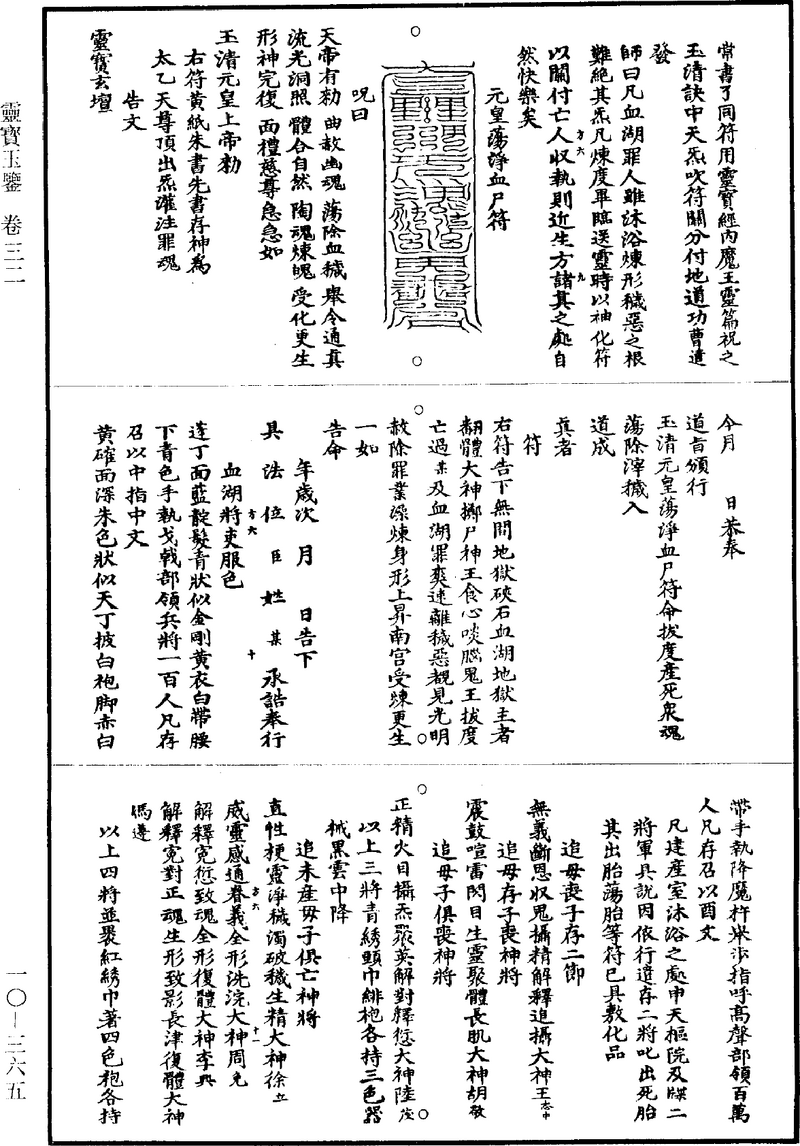 靈寶玉鑒 卷三二
常書了同符用靈寶經內魔王靈篇祝之
玉清訣中天炁吹符關分付地道功曹遣
發
師曰凡血湖罪人雖沐浴煉形穢惡之根
難絕其炁凡煉度畢臨送靈時以袖化符
以關付亡人收執則近生方諸真之處自
然快樂矣
元皇蕩淨血尸符
呪曰
天帝有勑 曲赦幽魂 蕩除血穢 舉令通真
流光洞照 體合自然 陶魂煉魄 受化更生
形神完復 面禮慈尊急急如
玉清元皇上帝勑
右符黃紙朱書先書存神為
太乙天尊頂出炁灌注罪魂
告文
靈寶玄壇
今月 日恭奉
道旨頒行
玉清元皇蕩淨血尸符命拔度產死眾魂
蕩除滓穢入
道成
真者
符
右符告下無間地獄硤石血湖地獄主者
翻體大神擲尸神王食心啖腦鬼王拔度
亡過某及血湖罪爽速離穢惡覩見光明
赦除罪業澡煉身形上昇南宮受煉更生
一如
告命
年歲次 月 日告下
具 法 位 臣 姓 某 承誥奉行
血湖將吏服色
蓬丁面藍靛髮青狀似金剛黃衣白帶腰
下青色手執戈戟部領兵將一百人凡存
召以中指中文
黃確面深朱色狀似天丁披白袍腳赤白
帶手執降魔杵舉步指呼高聲部領百萬
人凡存召以酉文
凡建產室沐浴之處申天樞院及牒二
將軍具說因依行遣存二將叱出死胎
其出胎蕩胎等符已具敷化品
追母喪子存二節
無義斷恩收鬼攝精解釋追攝大神王
追母存子喪神將
震鼓喧雷閃目生靈聚體長肌大神胡
追母子俱喪神將
正精火目攝炁聚英解對釋愆大神陸
以上三將青綉頭巾緋袍各持三色器
械黑雲中降
追未產毋子俱亡神將
直性梗靈淨穢濁破穢生精大神徐立
威靈感通眷義全形洗浣大神周允
解釋寃愆致魂全形復體大神李興
解釋寃對正魂生形致影長津復體大神
馮遷
以上四將並裹紅綉巾著四色袍各持
一〇－三六五